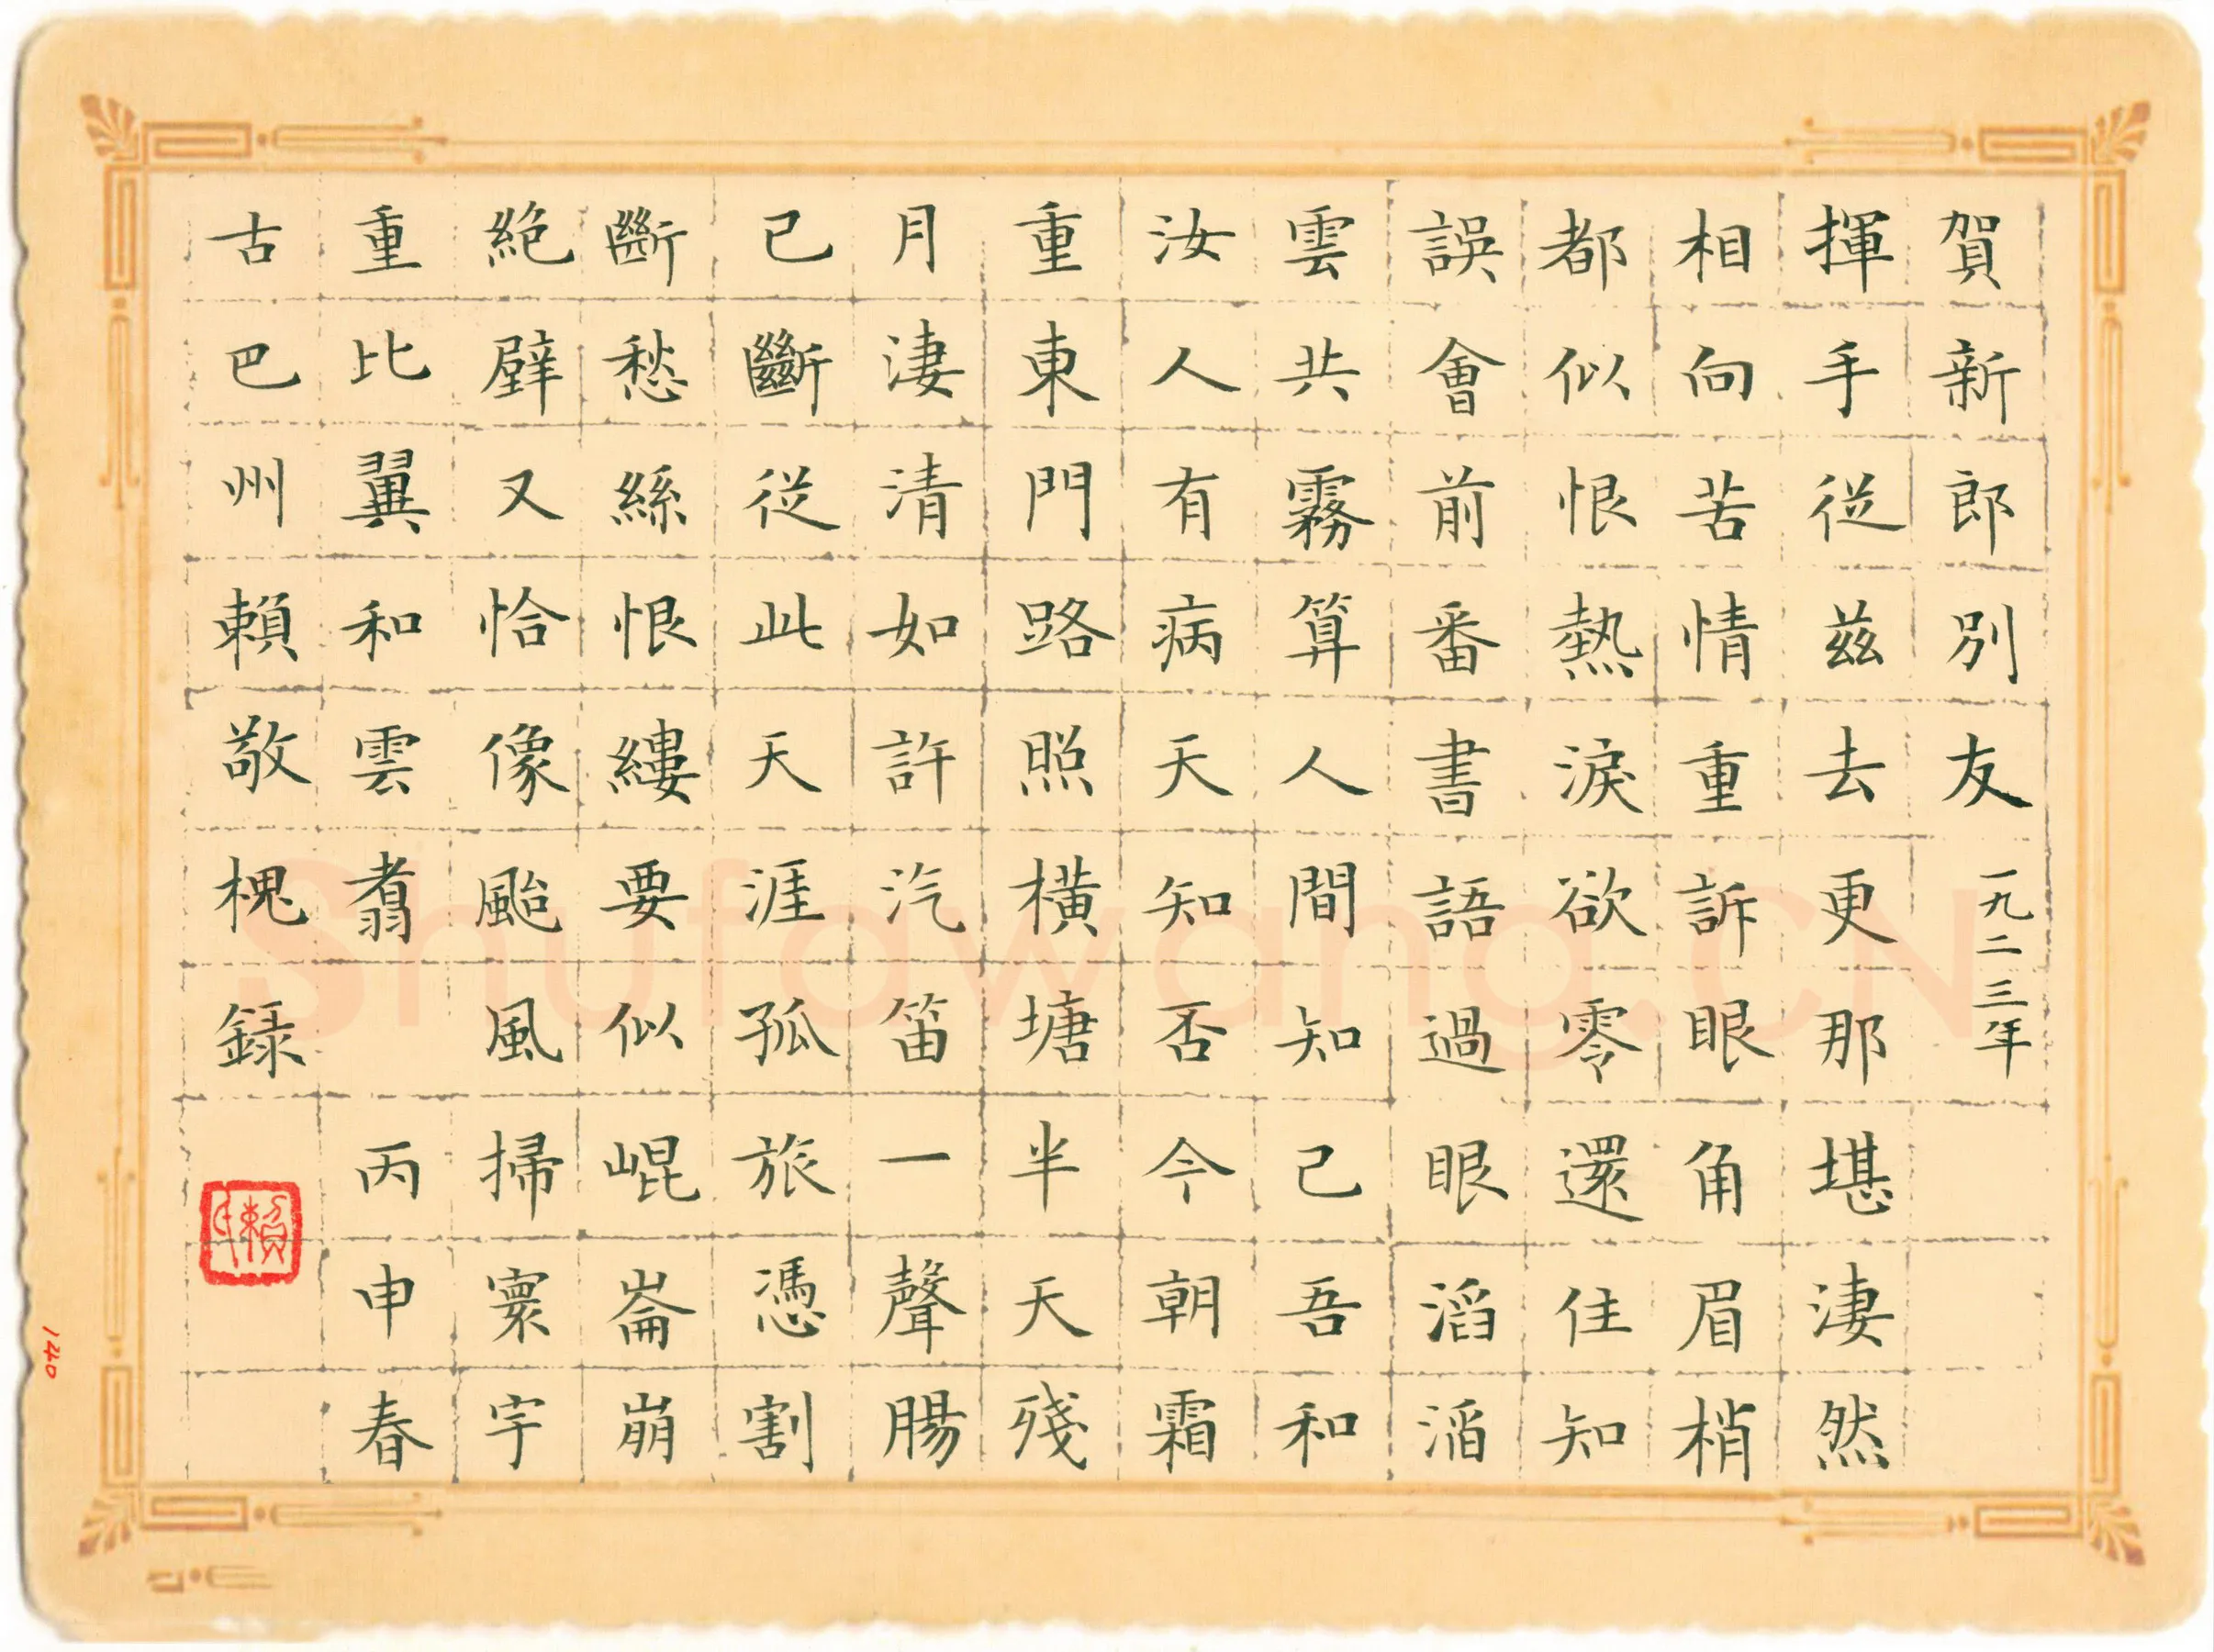 賀新郎別友一九二三年
揮手從茲去更那堪淒然
相向苦情重訴眼角眉梢
都似恨熱淚欲零還住知
誤會前番書語過眼滔滔
雲共霧算人間知己吾和
汝人有病天知否今朝霜
重東門路照橫塘半天殘
月淒清如許汽笛一聲腸
已斷從此天涯孤旅憑割
斷愁絲恨縷要似崐崙崩
絕壁又恰像颱風掃寰宇
重比翼和雲翥丙申春
古巴州賴敬槐録
Shufawang.CN
140